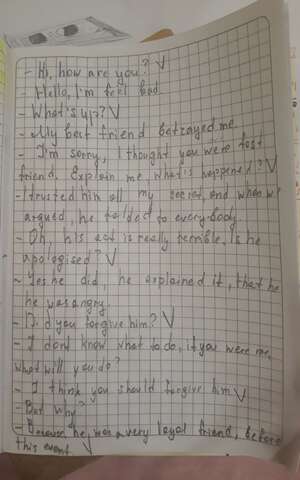 - Hi, how are you? V
- Hello, I'm feel bad
- What's up? V
- My best friend betrayed me
- I'm sorry, I thought you were best
friend. Explain me what is happened? V
- I trusted him all my secret, and when we
argued, he to everybody.
- Oh, his act is really terrible. Is he
apologised? V
- Yes he did, he explained it, that he
he was angry.
- Did you forgive him? V
- I don't know what to do, if you were me,
what will you do?
- I think you should forgive him V
- But why?
- Because he, was a very loyal friend, before
this event. V